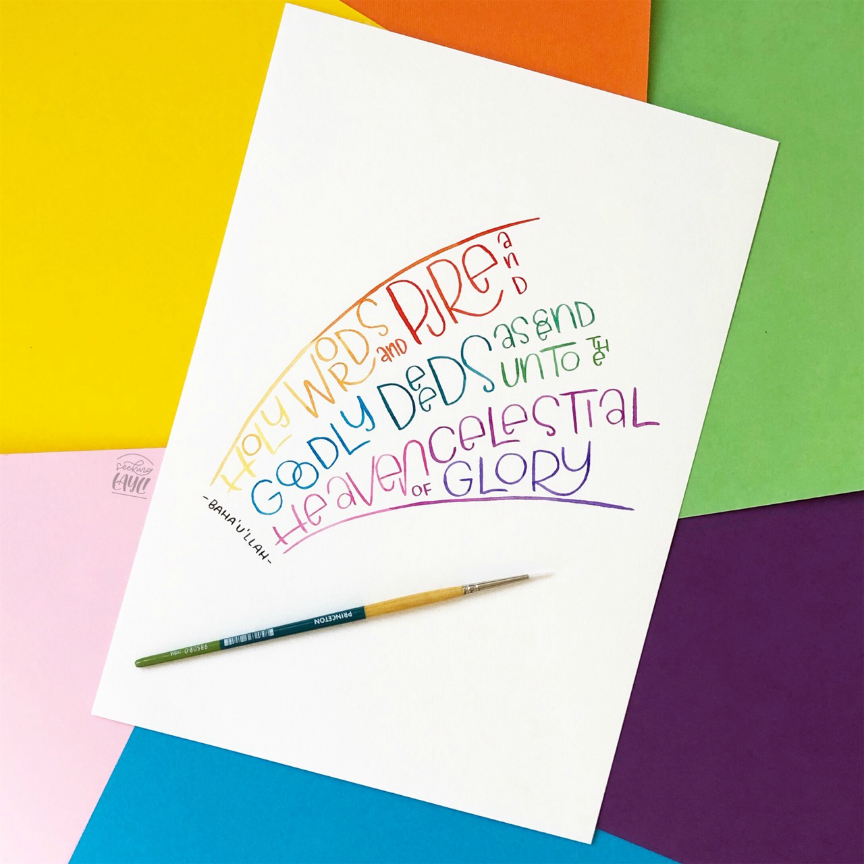 HOLY WORDS and PURE and
GOODLY DEEDS ascend unto THe
Heaven of celesTial GLORY
-BAHA'U'LLAH-
PRINCETON
seeking